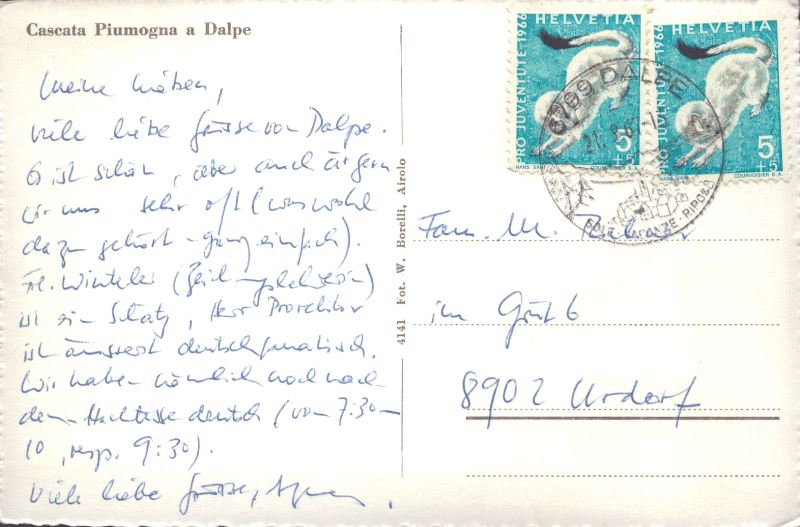 Cascata Piumogna a Dalpe
Meine Lieben,
viele liebe Grüsse von Dalpe.
Es ist schön, aber auch ärgern
wir uns sehr oft (was wohl
dazu gehört - ganz einfach).
Frl. Winteler (Zeichnungslehrerin)
ist ein Schatz, Herr Prorektor
ist äusserst deutschfanatisch.
Wir haben nämlich noch nach
dem Nachtesse deutsch (von 7:30-
10, resp. 9:30).
Viele liebe Grüsse,
4141 Fot. W. Borelli, Airolo
HELVETIA
PRO JUVENTUTE 1966
5
+5
HANS
COURVOISIER S.A.
HELVETIA
PRO JUVENTUTE 1966
5
+5
COURVOISIER S.A.
6799 DALPE
SOLE - VACANZE - RIPOSO
Fam. M.
im Grüt 6
8902 Urdorf